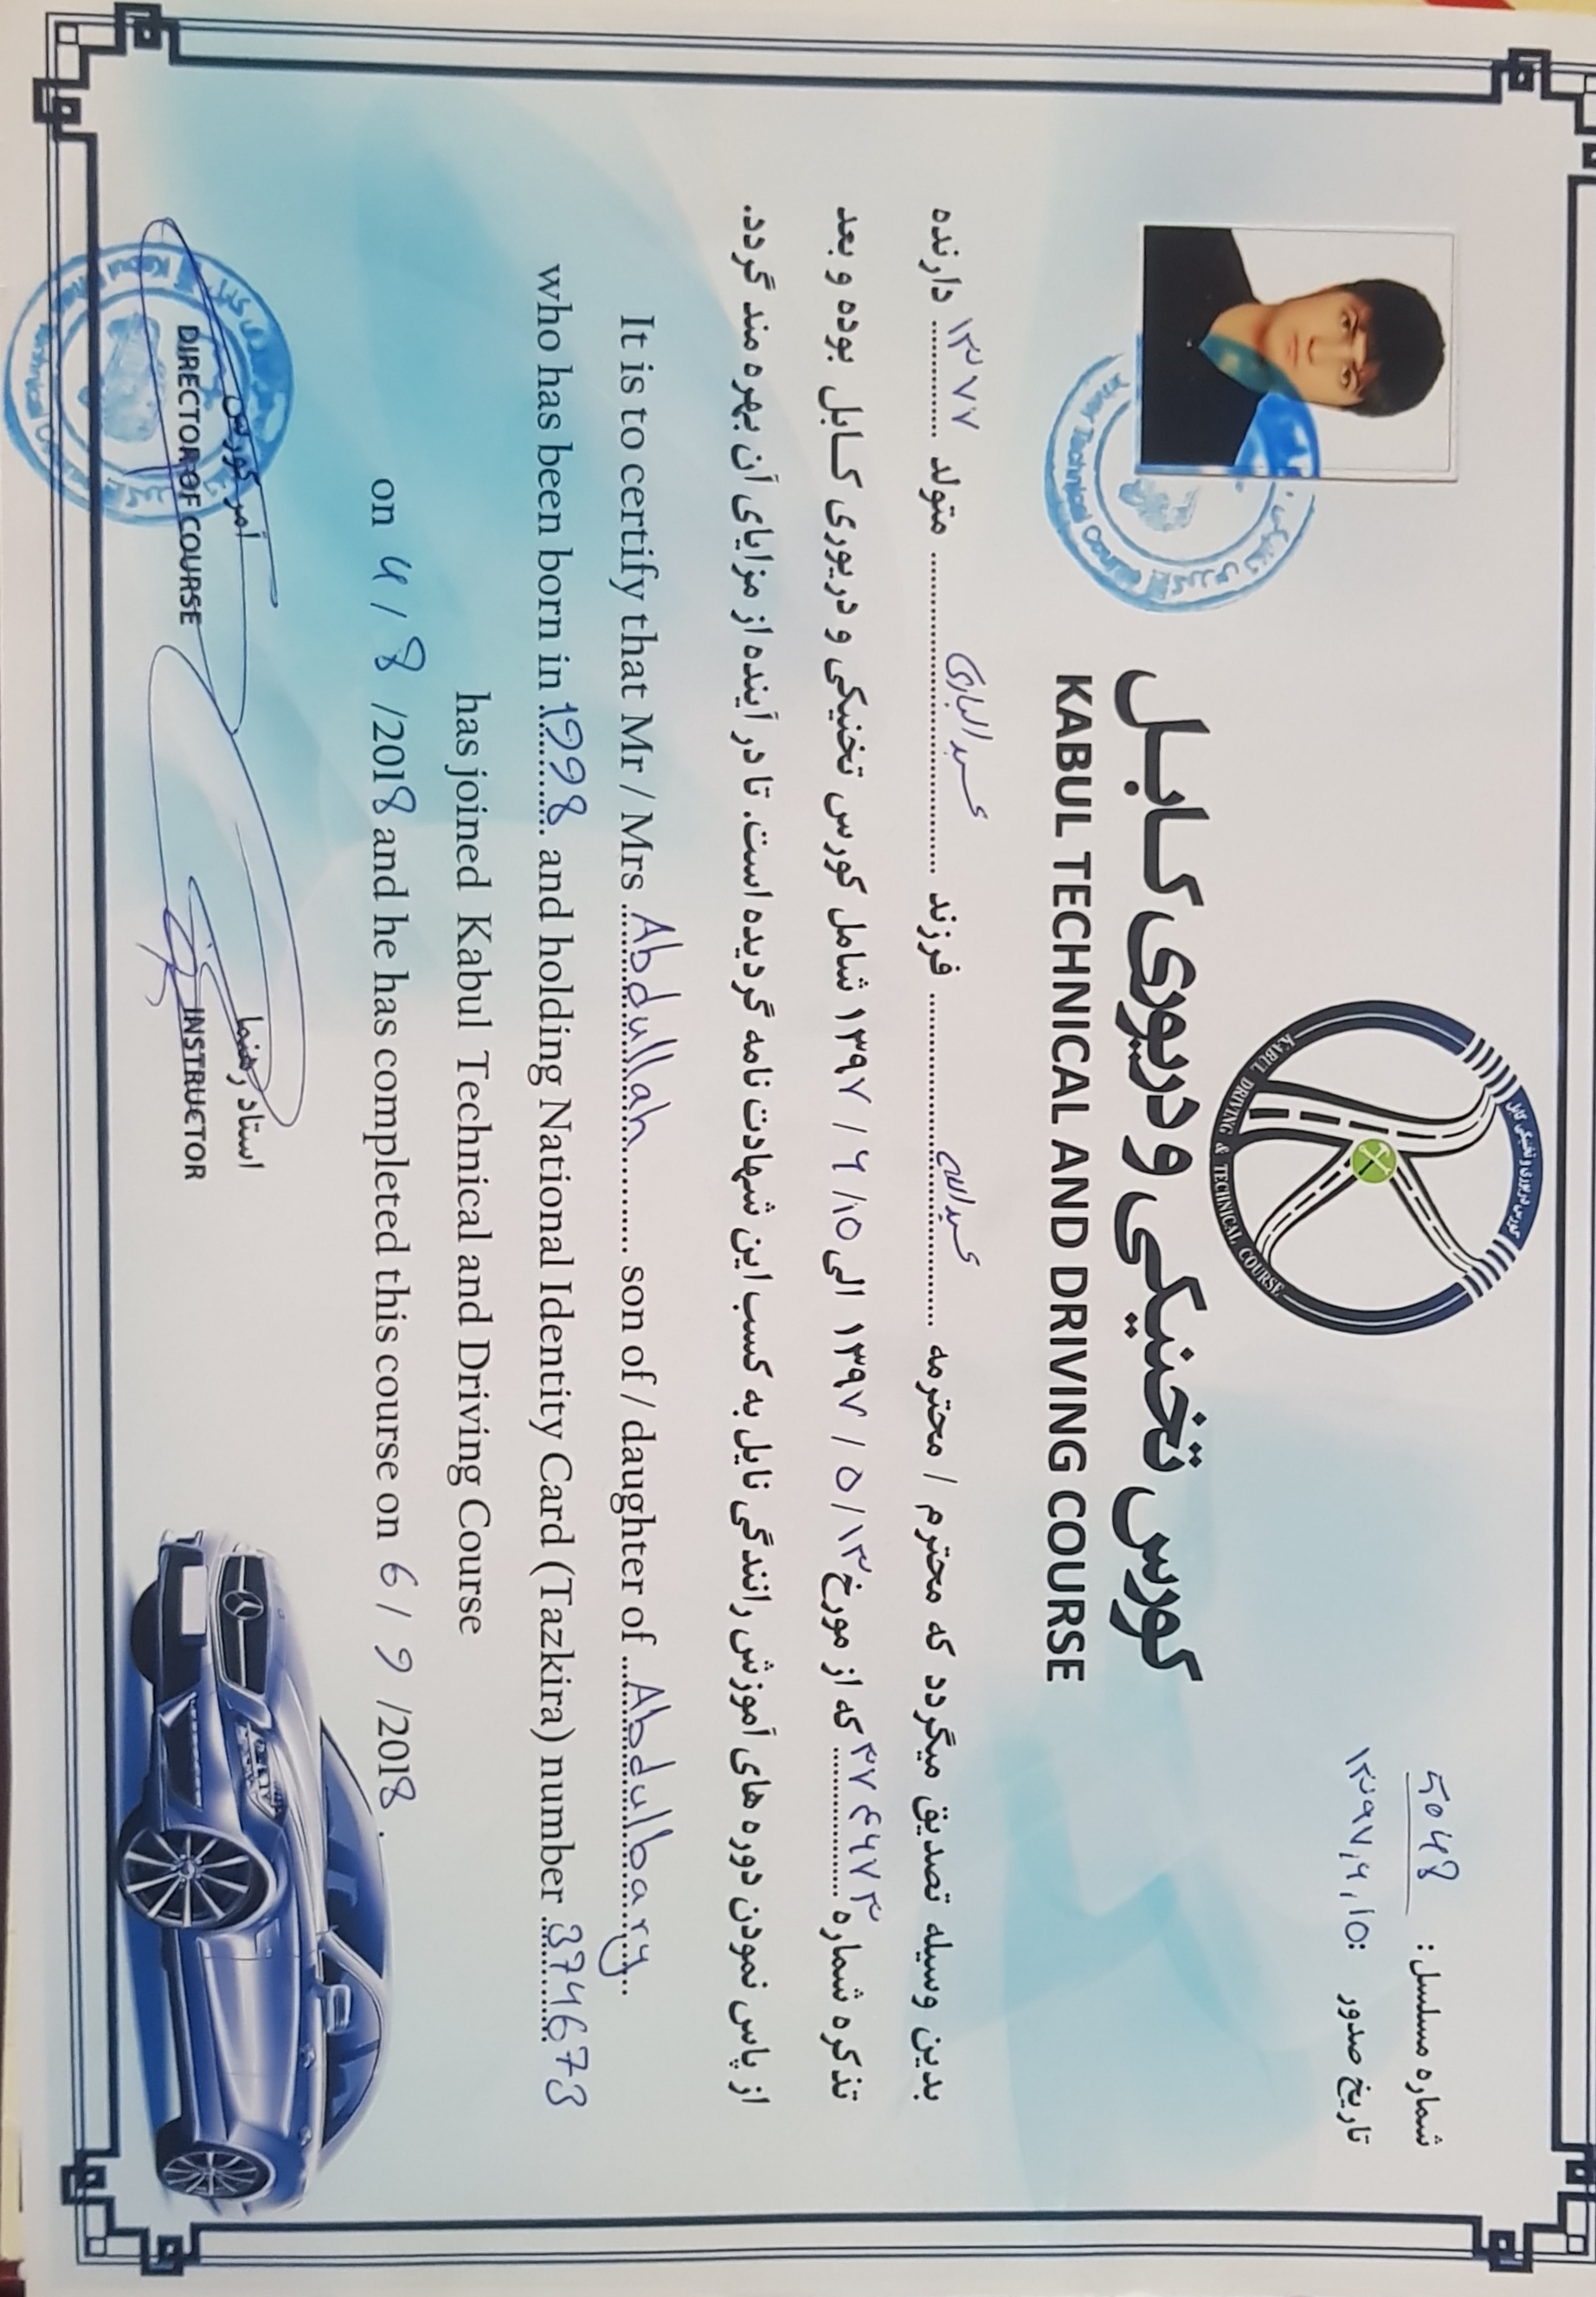 شماره مسلسل : ５０４８
تاریخ صدور : ۱۳۹۷,۶,۱۵
کورس دریوری و تخنیکی کابل
KABUL DRIVING & TECHNICAL COURSE
کورس تخنیکی و دریوری کابل
KABUL TECHNICAL AND DRIVING COURSE
بدین وسیله تصدیق میگردد که محترم / محترمه عبدالله فرزند عبدالباری متولد ۱۳۷۷ دارنده
تذکره شماره ۳۷۴۶۷۳ که از مورخ ۱۳ / ۵ / ۱۳۹۷ الی ۱۵ / ۶ / ۱۳۹۷ شامل کورس تخنیکی و دریوری کابل بوده و بعد
از پاس نمودن دوره های آموزش رانندگی نایل به کسب این شهادت نامه گردیده است. تا در آینده از مزایای آن بهره مند گردد.
It is to certify that Mr / Mrs Abdullah son of / daughter of Abdulbary
who has been born in 1998 and holding National Identity Card (Tazkira) number 374673
has joined Kabul Technical and Driving Course
on 4 / 8 /2018 and he has completed this course on 6 / 9 /2018 .
آمر کورس
DIRECTOR OF COURSE
استاد رهنما
INSTRUCTOR